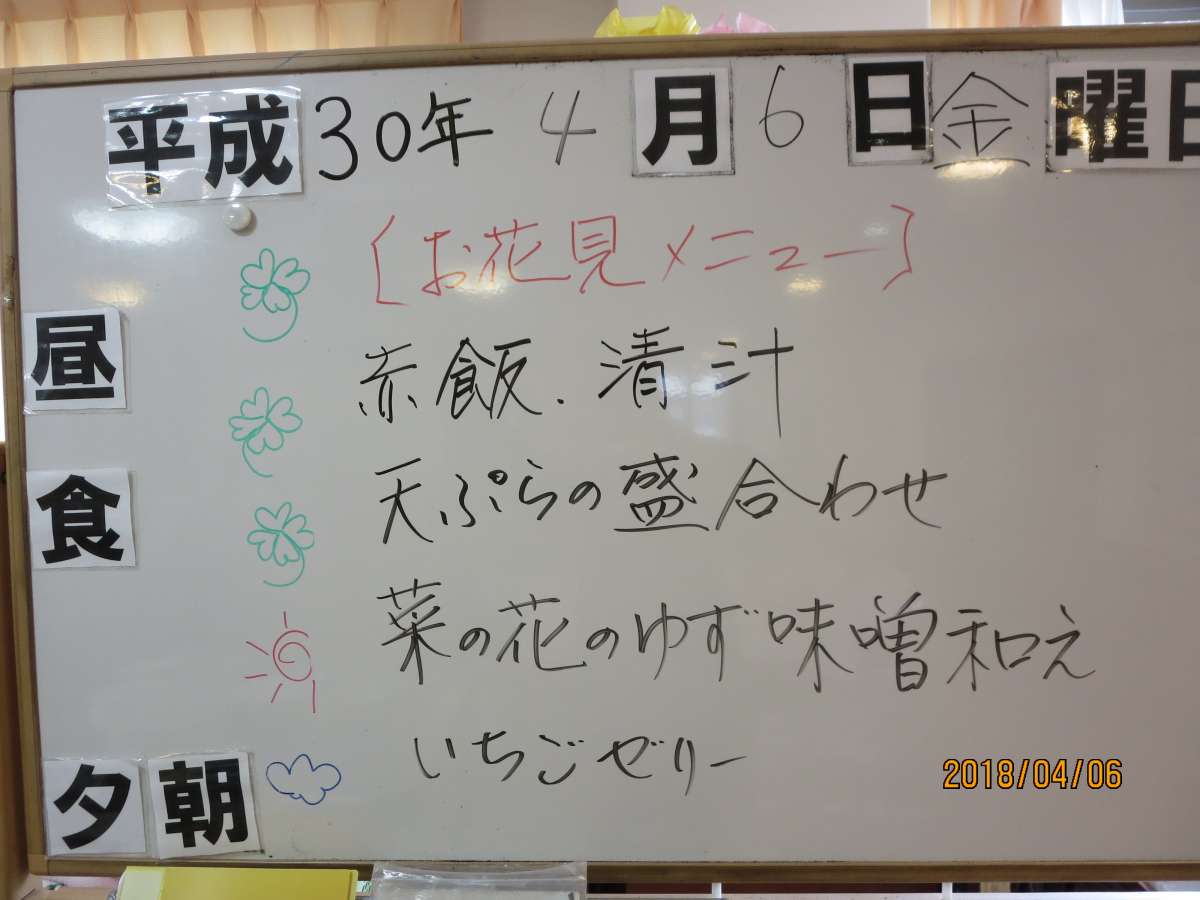 平成30年 4月6日金曜日
[お花見メニュー]
昼食
赤飯.清汁
天ぷらの盛合わせ
菜の花のゆず味噌和え
いちごゼリー
夕朝
2018/04/06